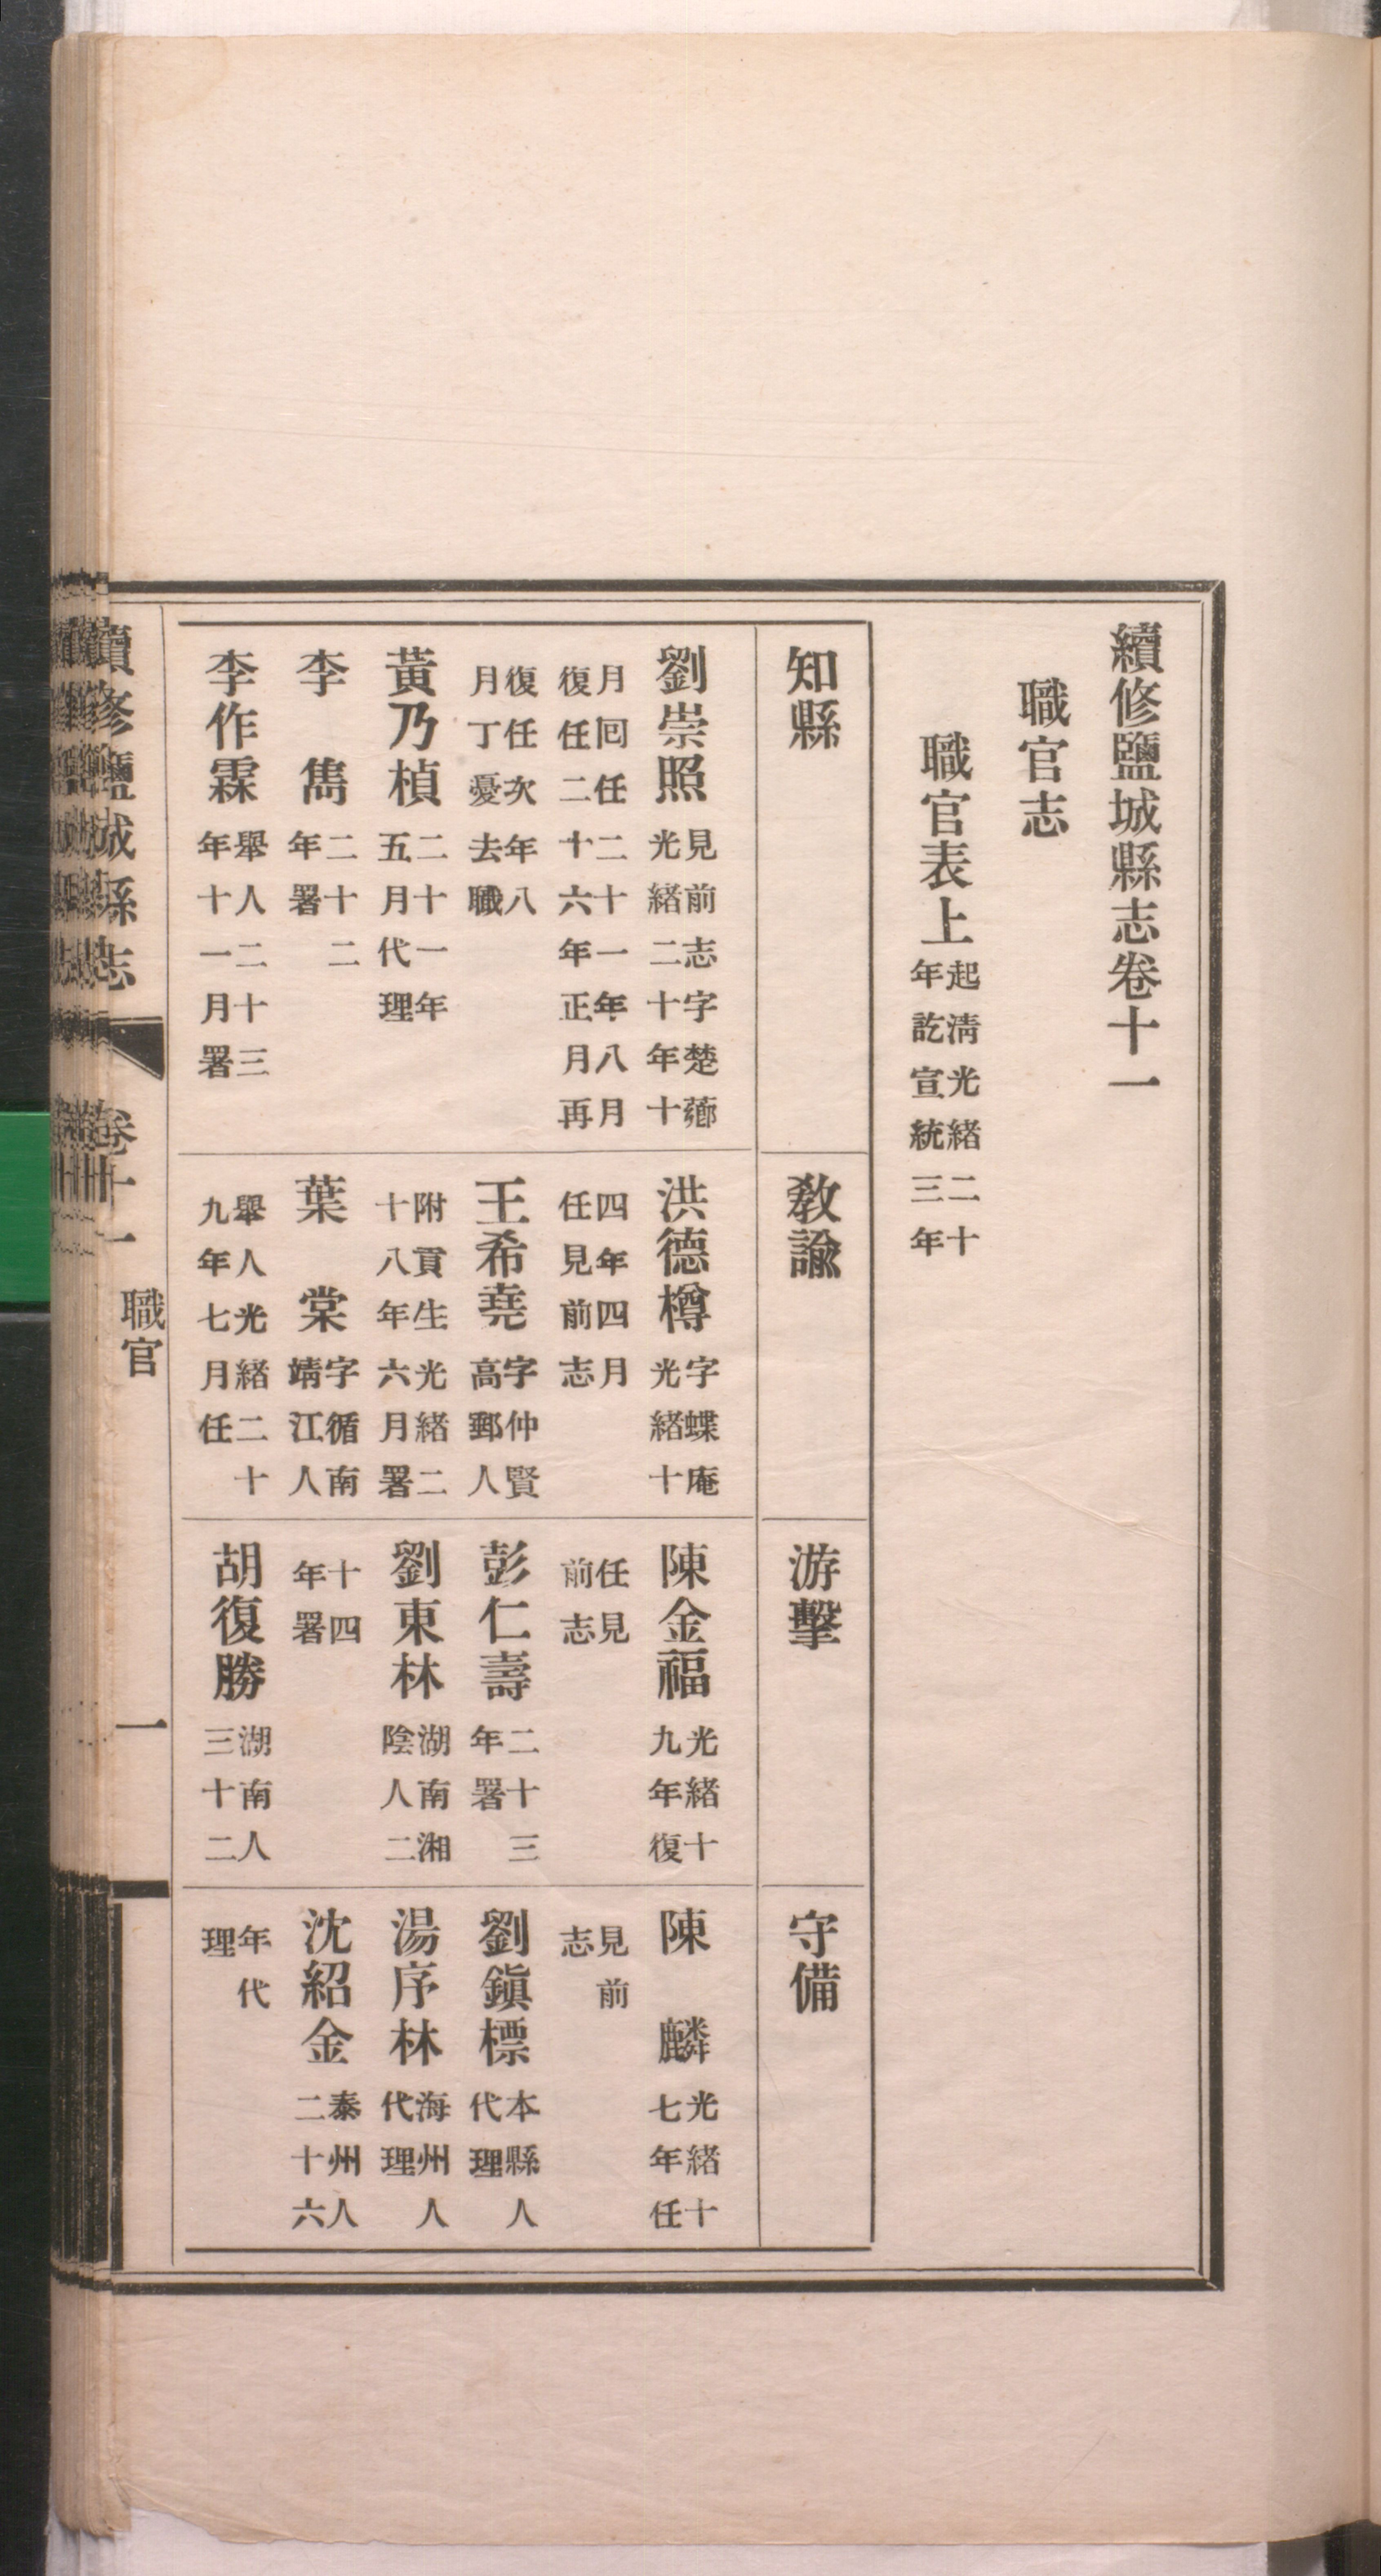 續修鹽城縣志卷十一
職官志
職官表上起清光緒二十年訖宣統三年
知縣
劉崇照見前志字楚薌光緒二十年十
月回任二十一年八月復任二十六年正月再
復任次年八月丁憂去職
黃乃楨二十一年五月代理
李雋二十二年署
李作霖舉人二十三年十一月署
教諭
洪德樽字蝶庵光緒十
四年四月任見前志
王希堯字仲賢高郵人
附貢生光緒二十八年六月署
葉棠字循南靖江人
舉人光緒二十九年七月任
游擊
陳金福光緒十九年復
任見前志
彭仁壽二十三年署
劉東林湖南湘陰人二
十四年署
胡復勝湖南人三十二
守備
陳麟光緒十七年任
見前志
劉鎭標本縣人代理
湯序林海州人代理
沈紹金泰州人二十六
年代理
續修鹽城縣志
卷十一
職官
一